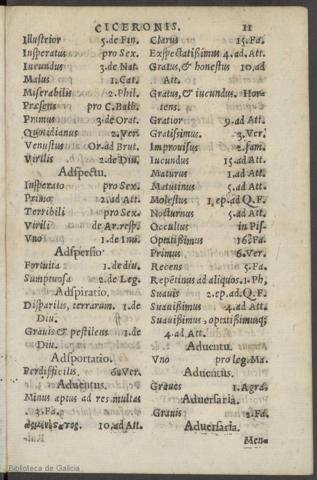 CICERONIS. 11
Illustrior 5.de Fin.
Insperatus pro Sex.
Iucundus 3.de Nat.
Malus 1.Cat.
Miserabilis 2.Phil.
Præsens pro C.Balb.
Primus 3.de Orat.
Quotidianus 2.Ver.
Venustus Or.ad Brut.
Virilis 2.de Diu.
Adspectu.
Insperato pro Sex.
Primo 2.ad Att.
Terribili pro Sex.
Virili de Ar.resp.
Vno 1.de Inu.
Adspersio
Fortuita 1.de diu.
Sumptuosa 2.de Leg.
Adspiratio.
Disparilis, terrarum. 1.de
Diu.
Grauis & pestilens 1.de
Diu.
Adsportatio.
Perdifficilis. 6.Ver.
Aduentus.
Minus aptus ad res multas
3.Fa.
10.ad Att.
Clarus 15.Fa.
Exspectatißimus 4.ad.Att.
Gratus,& honestus 10.ad
Att.
Gratus,& iucundus. Hor-
tens.
Gratior 9.ad Att.
Gratissimus. 3.Ver.
Improuisus 2.fam.
Iucundus 15.ad Att.
Maturus 1.ad Att.
Matutinus 5.ad Att.
Molestus 1.ep.ad Q.F.
Nocturnus 5.ad Att.
Occultus in Pis.
Optatißimus 16.Fa.
Primus 6.Ver.
Recens 5.Fa.
Repẽtinus ad aliquos.1.Ph.
Suauis 2.ep.ad.Q.F.
Suauißimus 4.ad Att.
Suauißimus,optatißimusq;
4.ad Att.
Aduentu.
Vno pro leg.Ma.
Aduentus.
Graues 1.Agra.
Aduersaria.
Grauis 2.Fa.
Aduersaria.
Men-
Biblioteca de Galicia